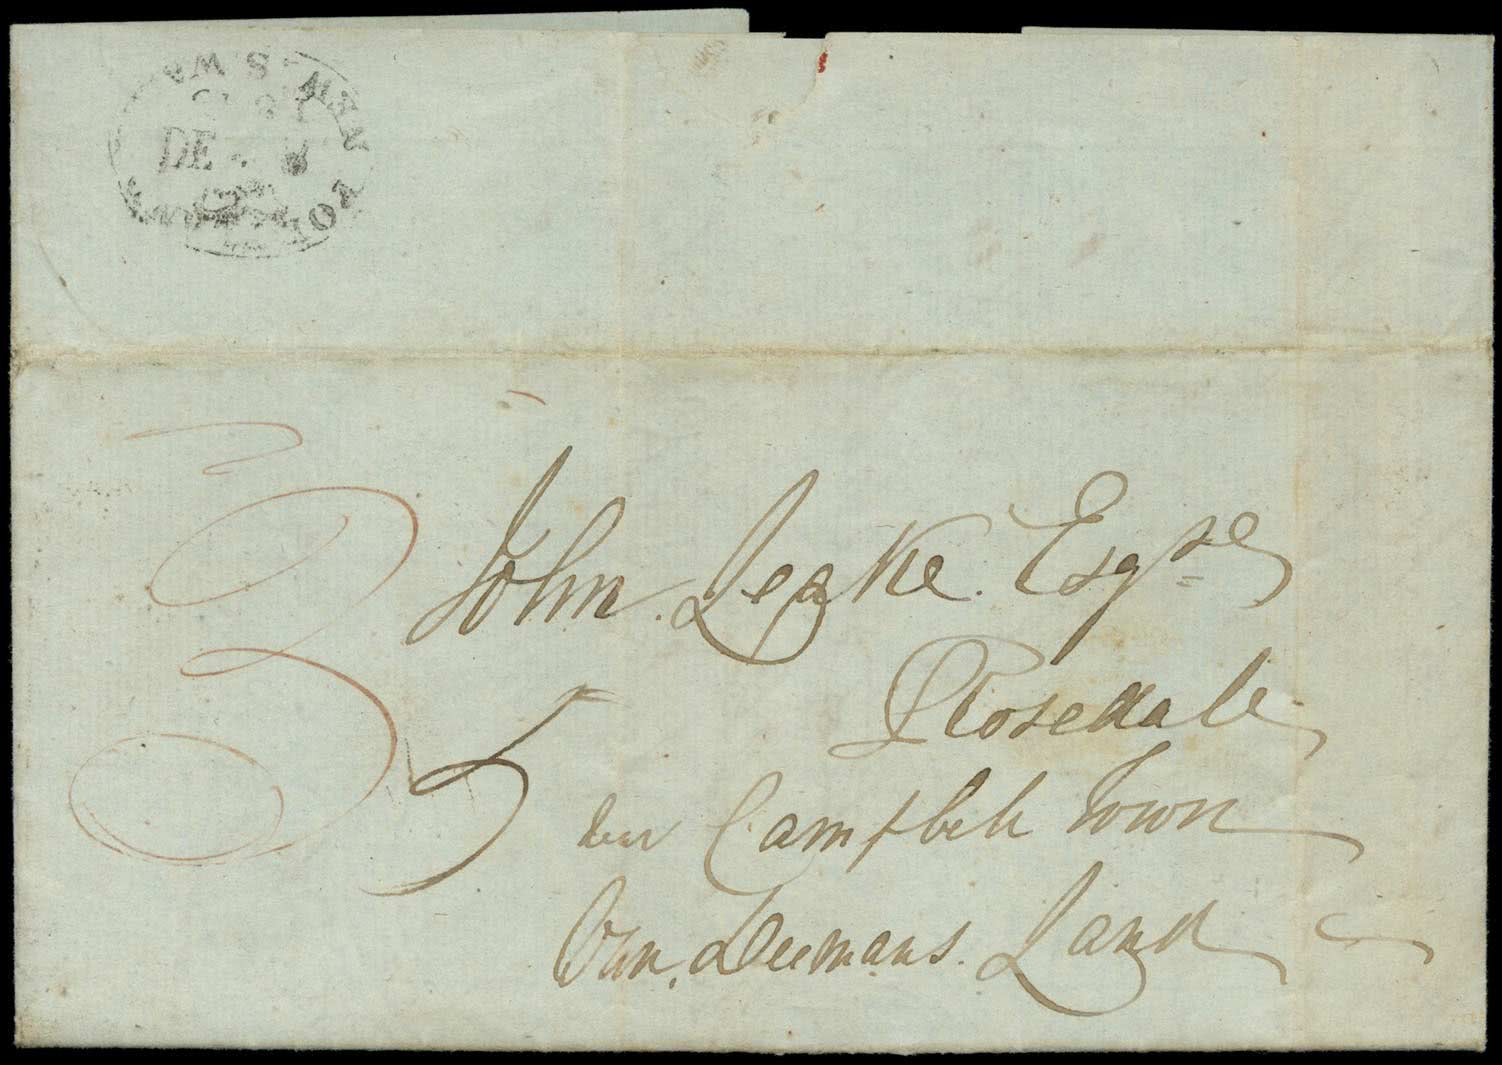 NEW S. WA
DE
3
5
John. Leake. Esqre
Rosedale
Campbell Town
Van. Diemans. Land